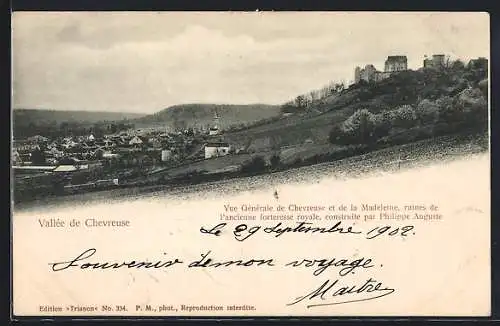 Vue Générale de Chevreuse et de la Madeleine, ruines de
l'ancienne forteresse royale, construite par Philippe Auguste
Vallée de Chevreuse
Le 29 Septembre 1902.
Souvenir de mon voyage.
Maitre
Edition »Trianon« No. 334. P. M., phot., Reproduction interdite.